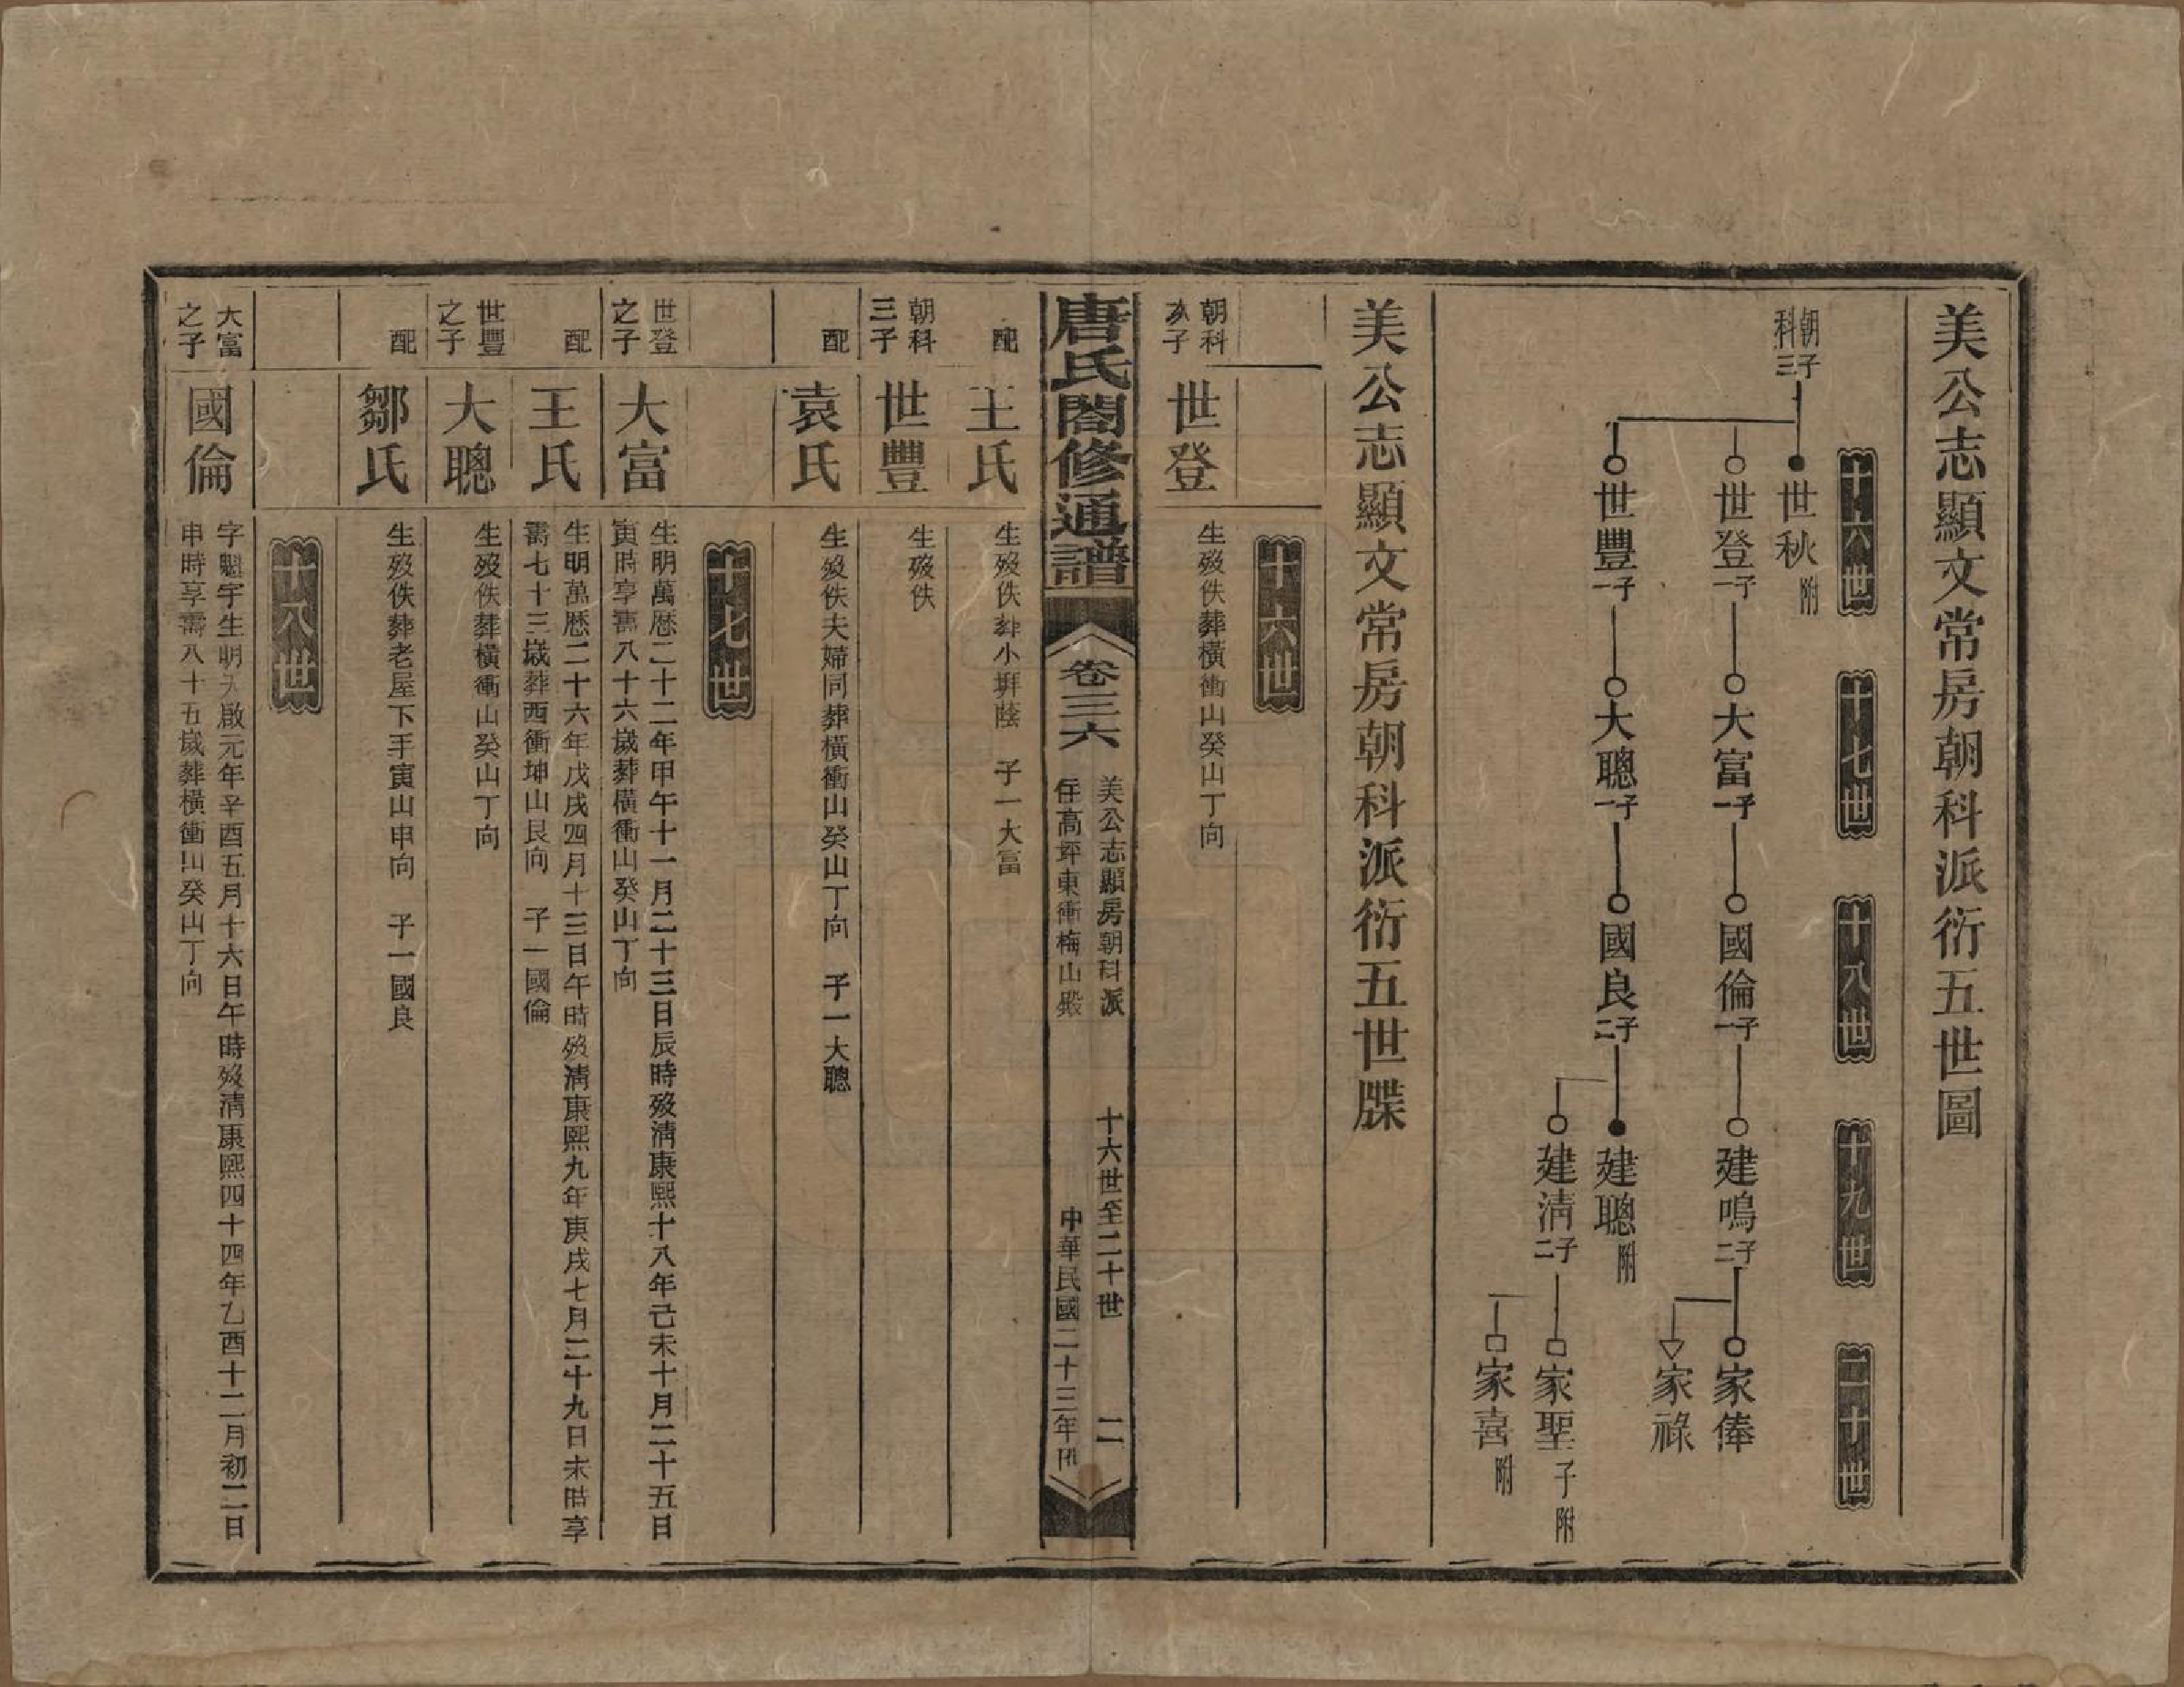 美公志顯文常房朝科派衍五世圖
十六世 十七世 十八世 十九世 二十世
朝科三子
世秋附
世登一子 大富一子 國倫一子 建鳴二子 家俸
家祿
世豐一子 大聰一子 國良二子 建聰附
建清二子 家聖子附
家喜附
美公志顯文常房朝科派衍五世牒
十六世
朝科次子 世登 生歿佚葬橫衝山癸山丁向
唐氏閤修通譜
卷三六
美公志顯房朝科派 十六世至二十世 二
住高坪東衝梅山殿 中華民國二十三年
配 王氏 生歿佚葬小塀蔭 子一大富
朝科三子 世豐 生歿佚
配 袁氏 生歿佚夫婦同葬橫衝山癸山丁向 子一大聰
十七世
世登之子 大富 生明萬歷二十二年甲午十一月二十三日辰時歿清康熙十八年己未十月二十五日
寅時享壽八十六歲葬橫衝山癸山丁向
配 王氏 生明萬歷二十六年戊戌四月十三日午時歿清康熙九年庚戌七月二十九日未時享
壽七十三歲葬西衝坤山艮向 子一國倫
世豐之子 大聰 生歿佚葬橫衝山癸山丁向
配 鄒氏 生歿佚葬老屋下手寅山申向 子一國良
十八世
大富之子 國倫 字魁宇生明天啟元年辛酉五月十六日午時歿清康熙四十四年乙酉十二月初二日
申時享壽八十五歲葬橫衝山癸山丁向